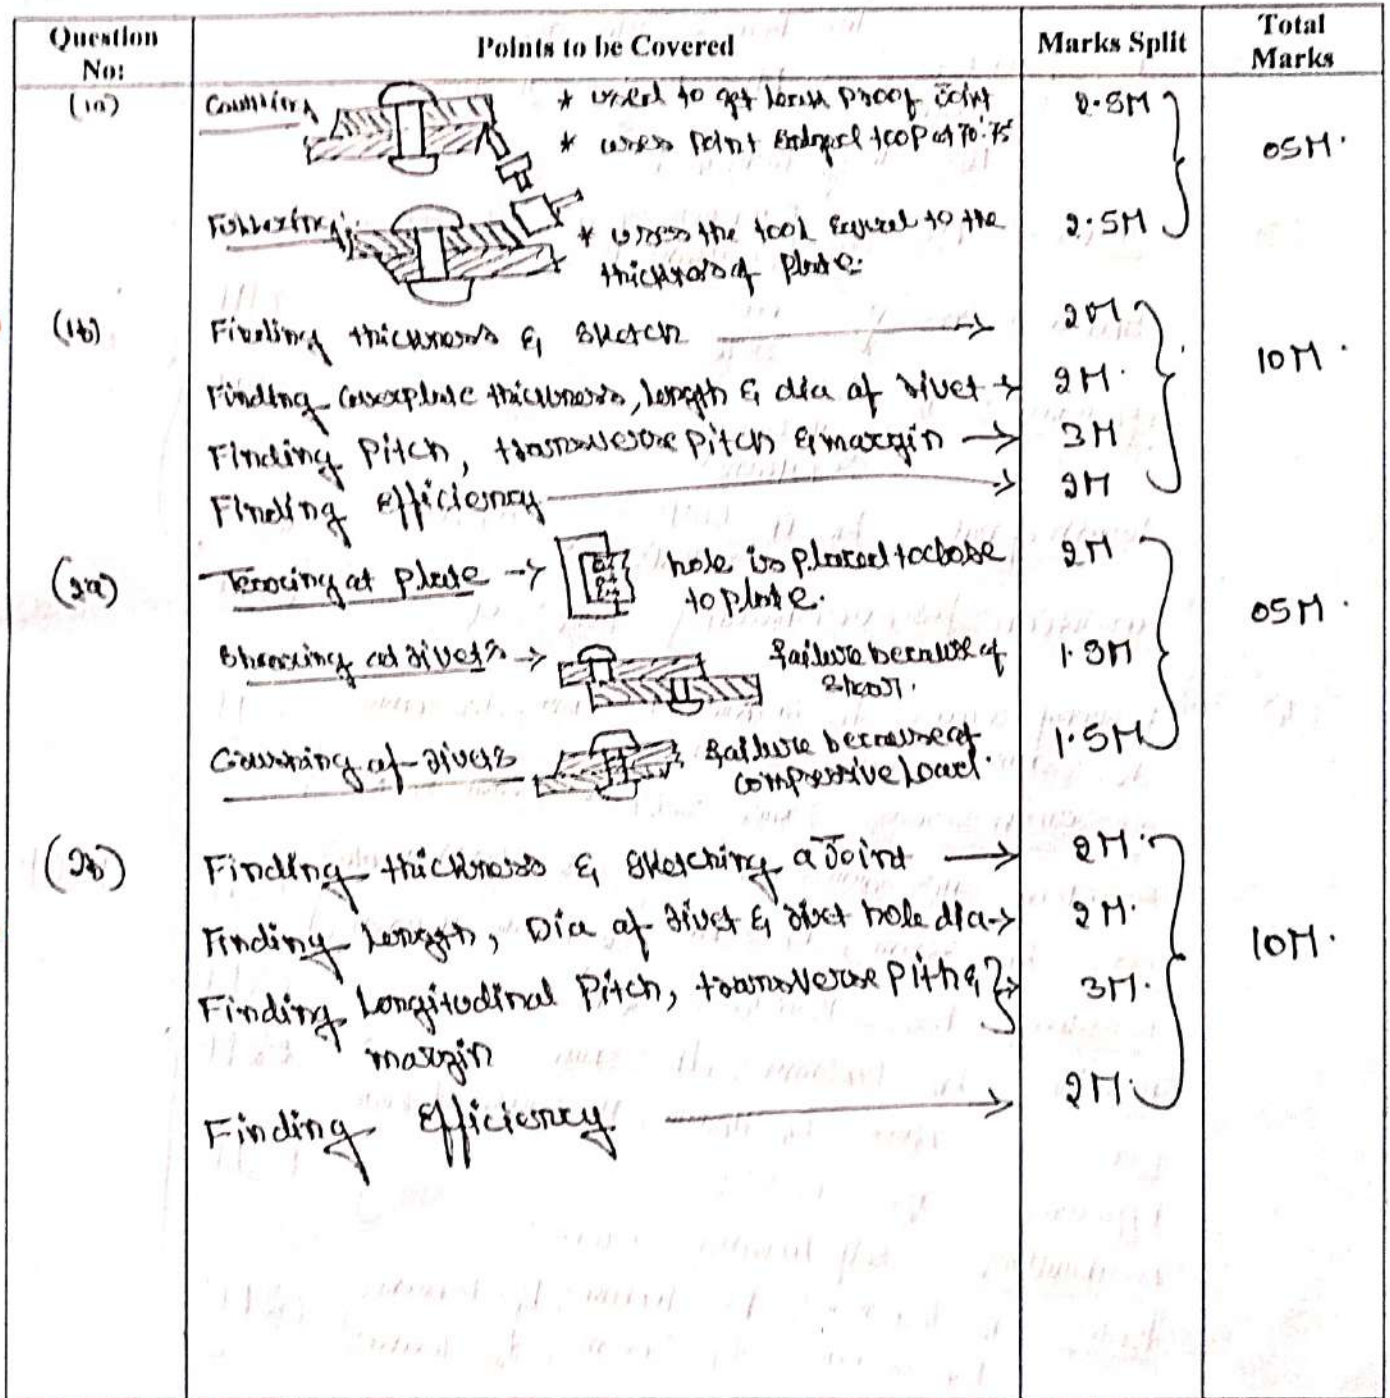 Question No:
Points to be Covered
Marks Split
Total Marks
(1a)
Caulking
* used to get leak proof Joint
* uses Point tool at 70°-75°
2.5M
05M.
Fullering:
* uses the tool equal to the
thickness of plate.
2.5M
(1b)
Finding thickness & sketch
2M
10M.
Finding Coverplate thickness, length & dia of rivet
2M.
Finding Pitch, transverse pitch & margin
3M
Finding efficiency
2M
(2a)
Tearing at plate
hole is placed to close
to plate.
2M
05M.
Shearing at rivets
failure because of
shear.
1.5M
Crushing of rivets
failure because of
compressive Load.
1.5M
(2b)
Finding thickness & sketching a Joint
2M.
10M.
Finding Length, Dia of rivet & rivet hole dia
2M.
Finding Longitudinal Pitch, transverse Pith &
margin
3M.
Finding Efficiency.
2M.